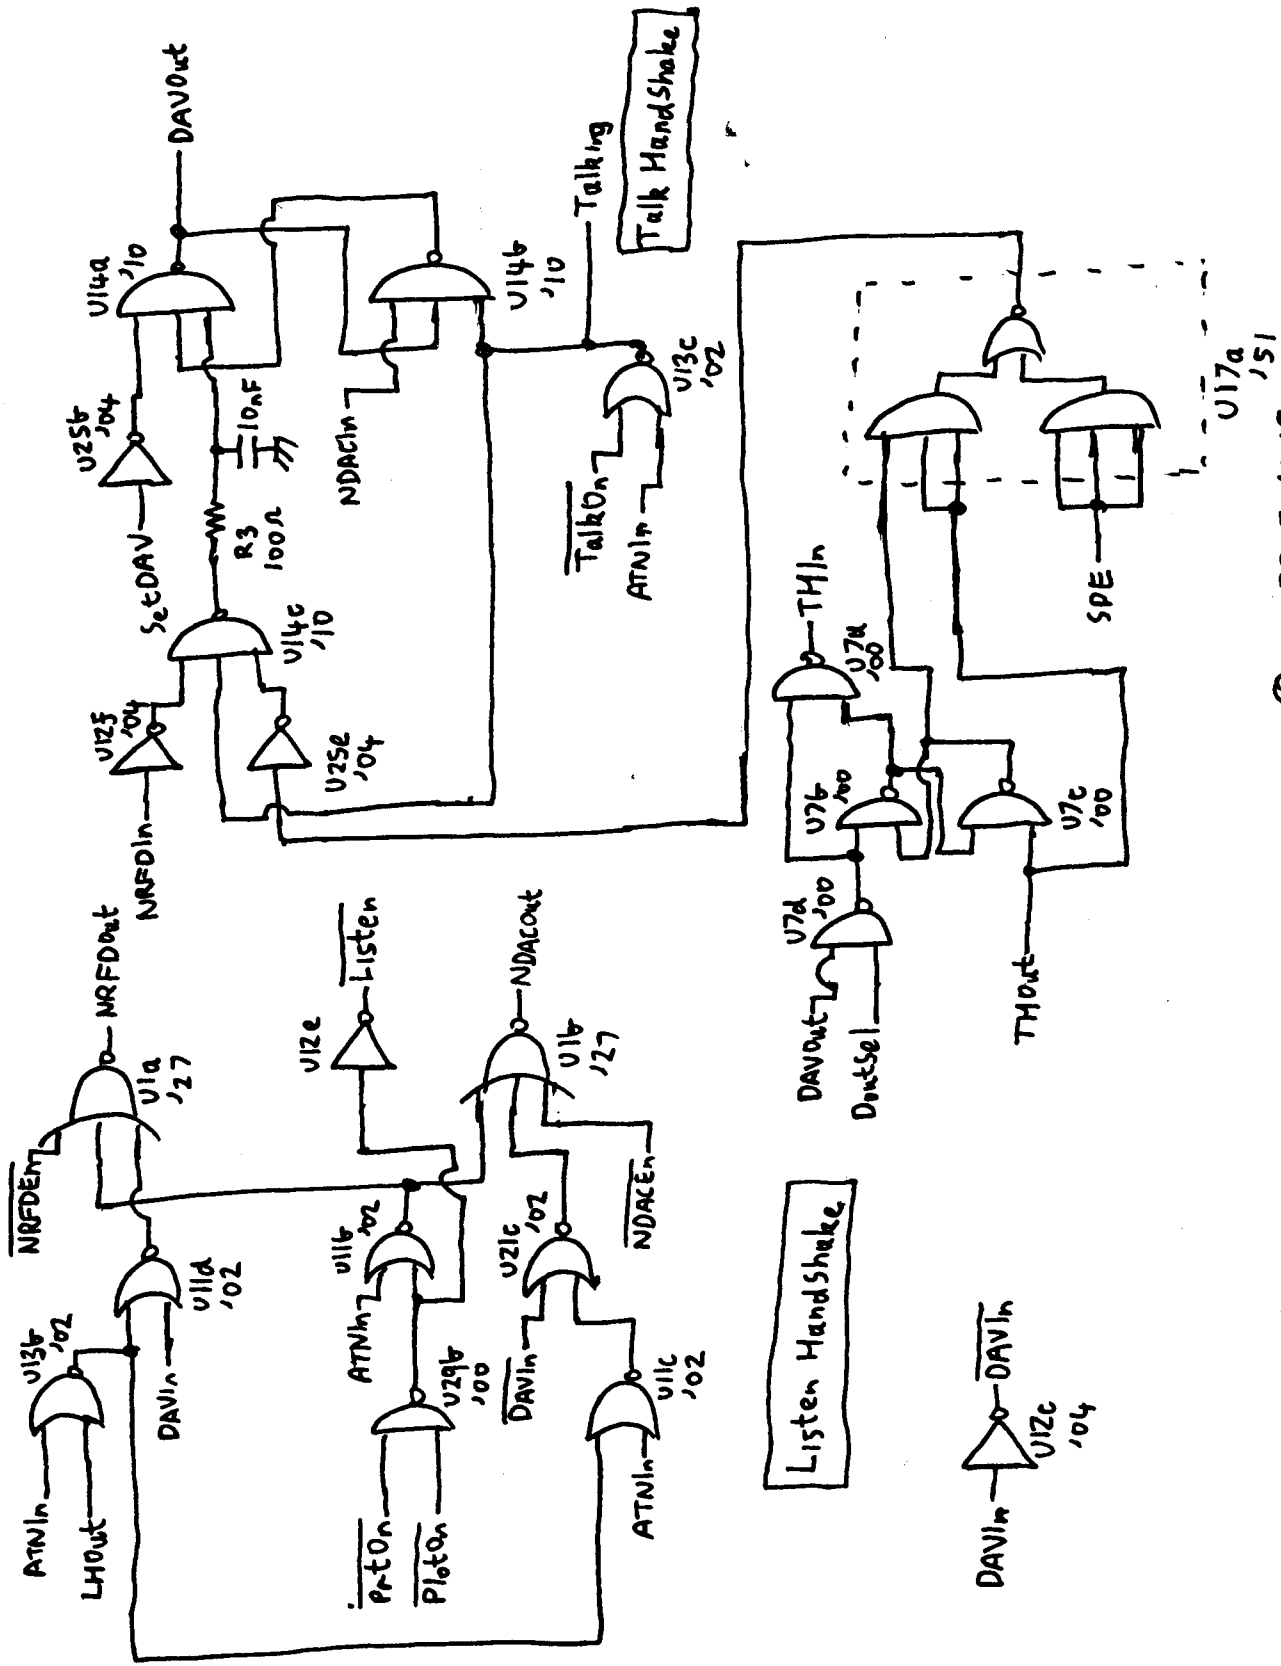 ATNIn
LHOut
U13b
'02
DAVIn
U11d
'02
NRFDEn
U1a
'27
NRFDOut
PrtOn
PlotOn
U29b
'00
ATNIn
U11b
'02
U12e
Listen
DAVIn
ATNIn
U11c
'02
U21c
'02
NDACEn
U1b
'27
NDACOut
Listen HandShake
DAVIn
U12c
'04
DAVIn
NRFDIn
U12f
'04
U25e
'04
U14c
'10
SetDAV
U25b
'04
R3
100Ω
10nF
U14a
'10
DAVOut
NDACIn
U14b
'10
TalkOn
ATNIn
U13c
'02
Talking
Talk HandShake
DAVOut
DoutSel
U7d
'00
U7b
'00
U7a
'00
THIn
THOut
U7c
'00
SPE
U17a
'51